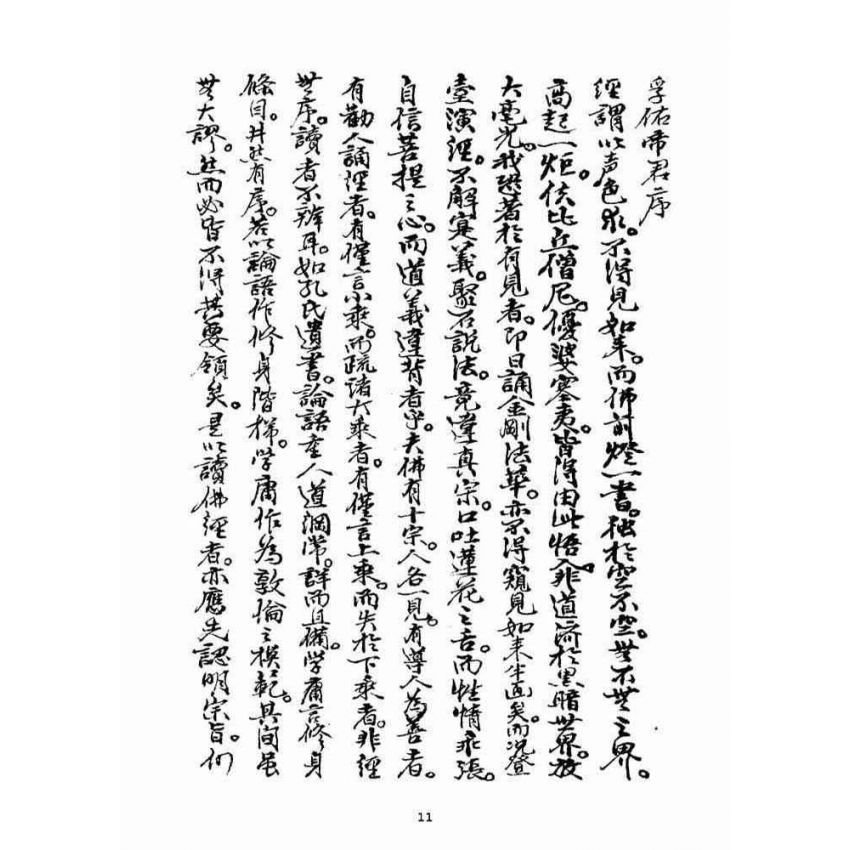 孚佑帝君序
經謂以声色求。不得見如来。而佛前燈一書。独於空不空。無不無之界。
高起一炬。使比丘僧尼。優婆塞夷。皆得由此悟入。非道済於黑暗世界。放
大毫光。我恐著於有見者。即日誦金剛法華。亦不得窺見如来半面矣。而况登
臺演經。不解寔義。聚石説法。竟違真宗。口吐蓮花之舌。而性情乖張。
自信菩提之心。而道義違背者乎。夫佛有十宗。人各一見。有導人為善者。
有勸人誦經者。有僅言小乘。而疏诸大乘者。有僅言上乘。而失於下乘者。非經
無序。讀者不辨耳。如孔氏遺書。論語重人道綱常。詳而且備。学庸言修身
條目。井然有序。若以論語作修身階梯。学庸作為敦倫之模範。其间虽
無大謬。然而必皆不得其要領矣。是以讀佛經者。亦應先認明宗旨。何
11